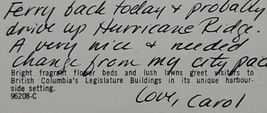 Ferry back today & probably
drive up Hurricane Ridge.
A very nice & needed
change from my city pace
Bright fragrant flower beds and lush lawns greet visitors to
British Columbia's Legislature Buildings in its unique harbour-
side setting.
96208-C
Love, Carol